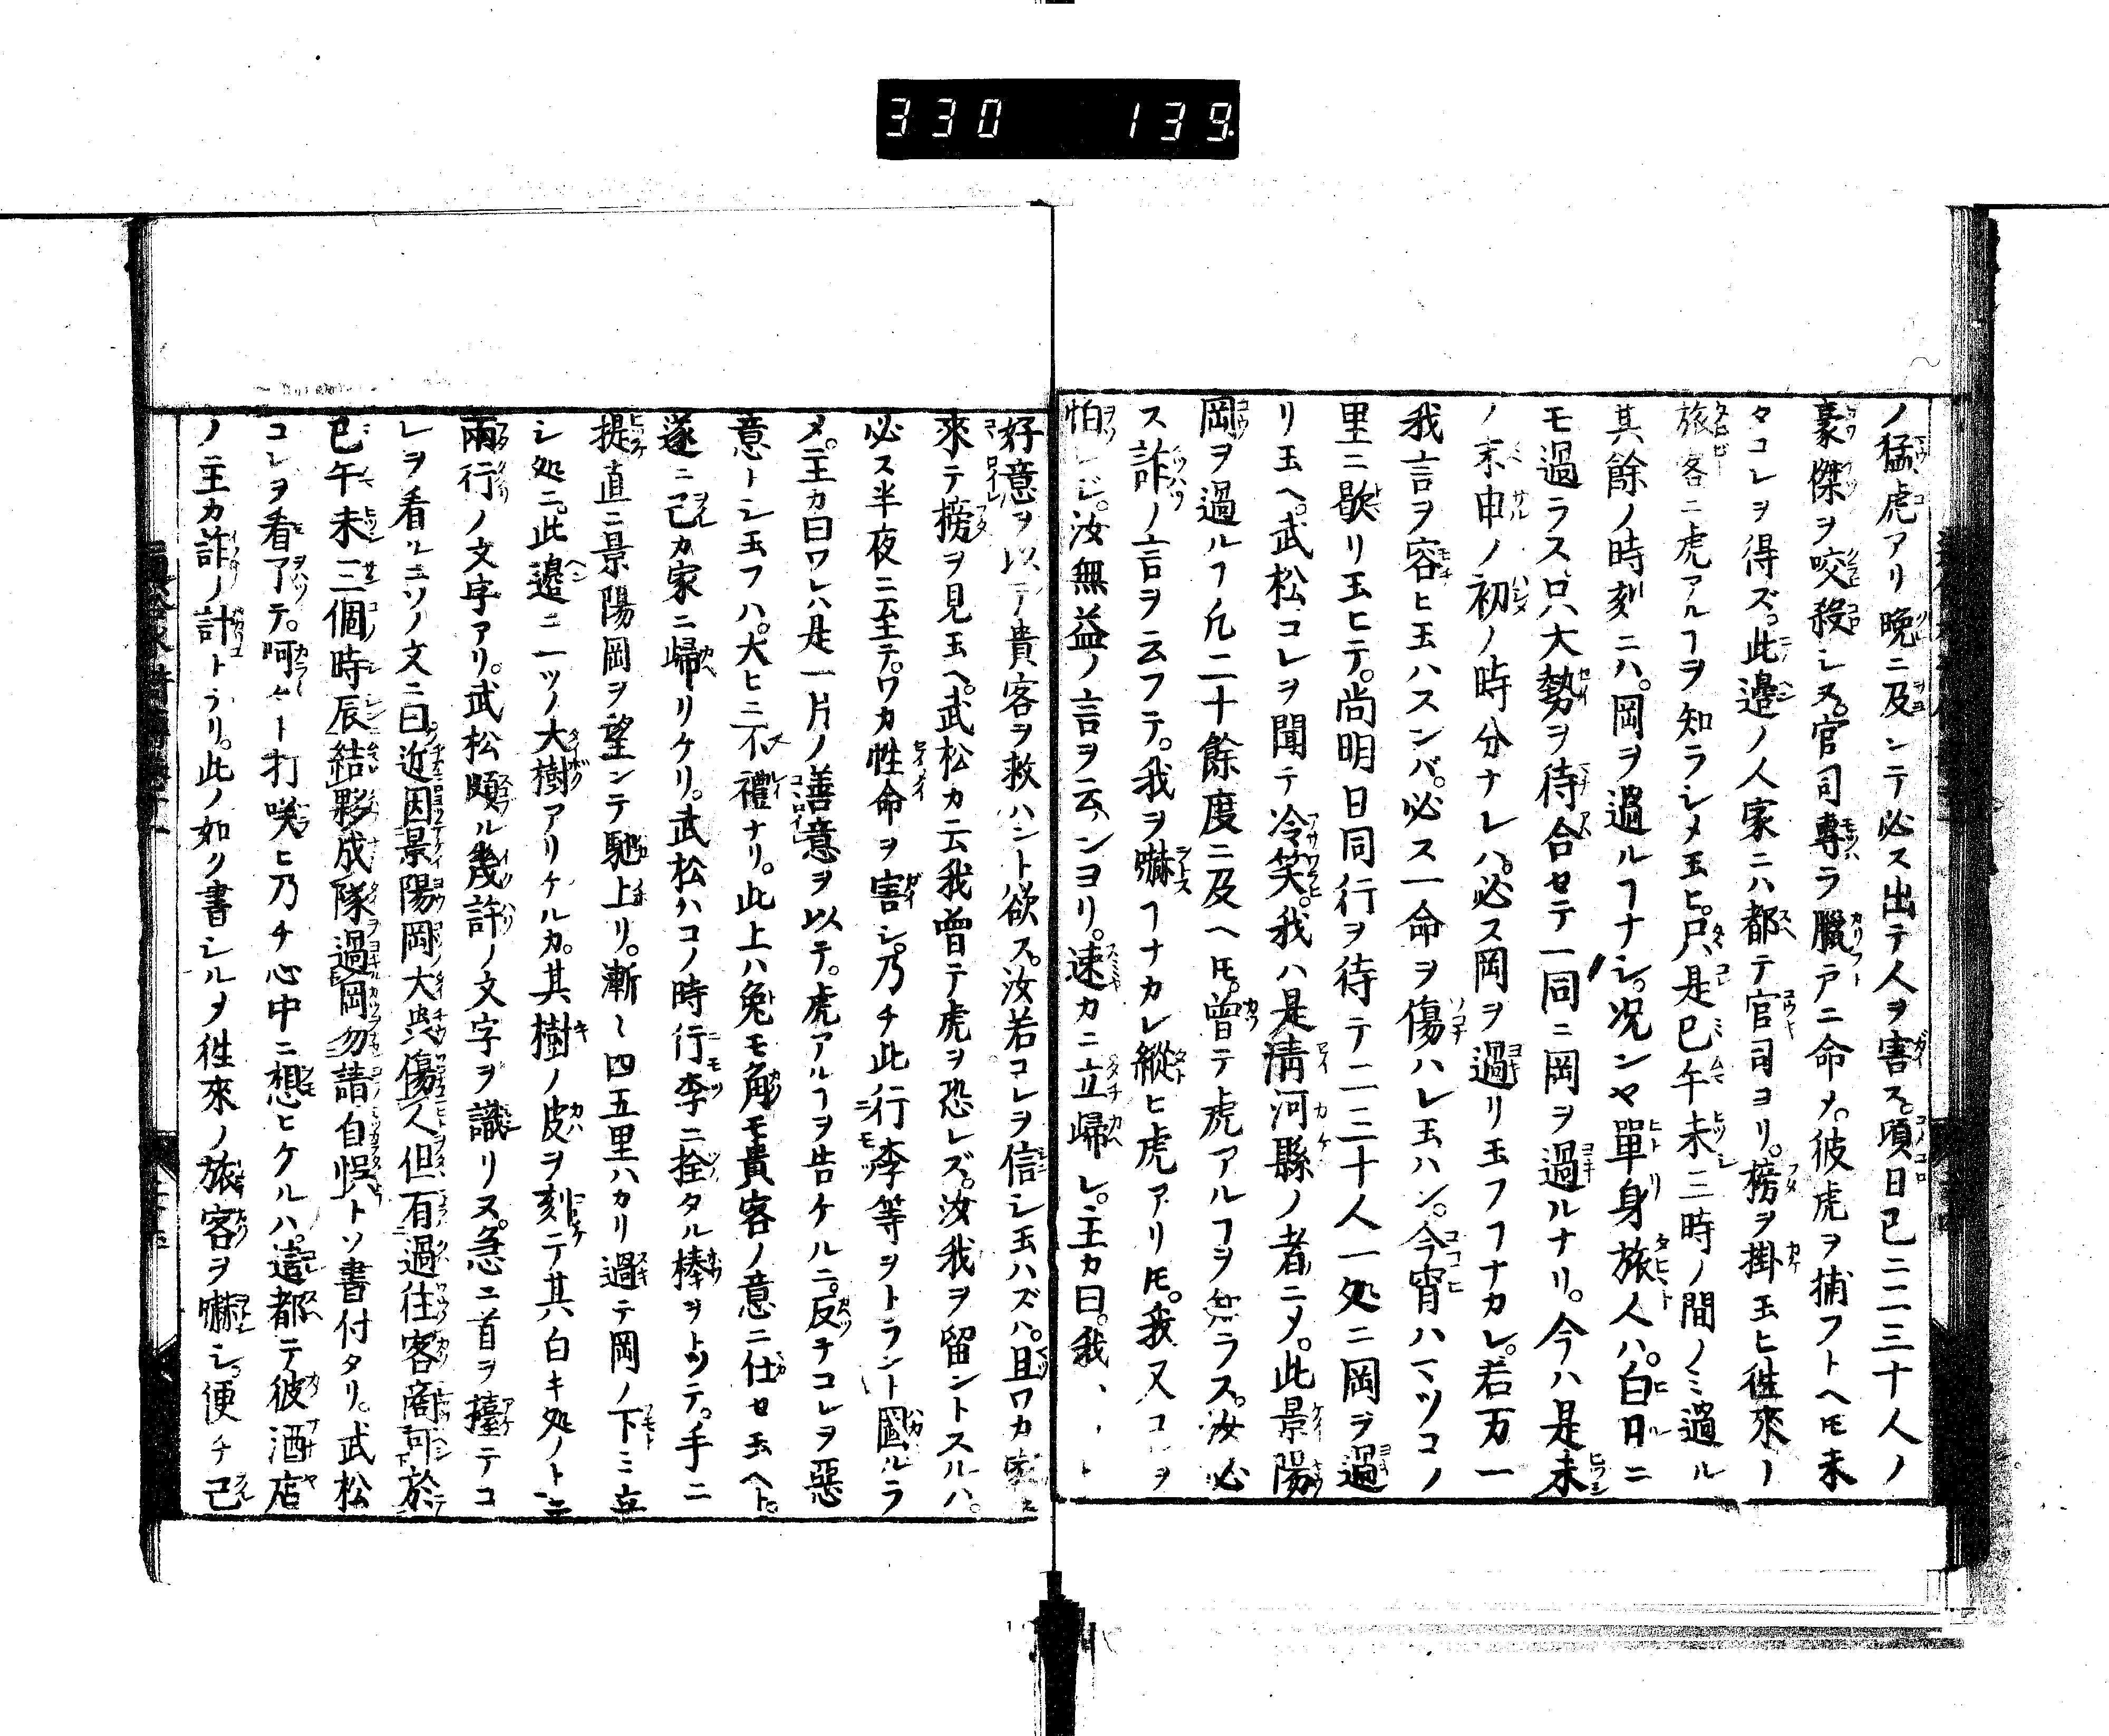 330 139
ノ猛虎アリ晩ニ及ンテ必ス出テ人ヲ害ス頃日已ニ二三十人ノ
豪傑ヲ咬殺シヌ。官司專ラ臘戸ニ命メ。彼虎ヲ捕フトヘ𪜈未
タコレヲ得ズ。此邉ノ人家ニハ都テ官司ヨリ。榜ヲ掛玉ヒ徃來ノ
旅客ニ虎アルヿヲ知ラシメ玉ヒ。只是巳午未三時ノ間ノミ過ル
其餘ノ時刻ニハ。岡ヲ過ルヿナシ。况ンヤ單身旅人ハ。白日ニ
モ過ラス只大勢ヲ待合セテ一同ニ岡ヲ過ルナリ。今ハ是未
ノ末申ノ初ノ時分ナレハ。必ス岡ヲ過リ玉フヿナカレ。若万一
我言ヲ容ヒ玉ハスンバ。必ス一命ヲ傷ハレ玉ハン。今宵ハマツコノ
里ニ歇リ玉ヒテ。尚明日同行ヲ待テ二三十人一処ニ岡ヲ過
リ玉ヘ。武松コレヲ聞テ冷笑。我ハ是淸河縣ノ者ニメ。此景陽
岡ヲ過ルヿ凢二十餘度ニ及ヘ𪜈。曽テ虎アルヿヲ知ラス。汝必
ス詐ノ言ヲ云フテ。我ヲ嚇ヿナカレ縱ヒ虎アリ𪜈。我又コレヲ
怕レジ。汝無益ノ言ヲ云ンヨリ。速カニ立歸レ。主カ曰。我
好意ヲ以テ貴客ヲ救ハント欲ス。汝若コレヲ信シ玉ハズハ。且ワカ家ニ
來テ榜ヲ見玉ヘ。武松カ云我曽テ虎ヲ恐レズ。汝我ヲ留ントスルハ。
必ス半夜ニ至テ。ワカ性命ヲ害シ。乃チ此行李等ヲトラント圖ルラ
メ。主カ曰ワレハ是一片ノ善意ヲ以テ。虎アルヿヲ告ケルニ。反チコレヲ惡
意トシ玉フハ。大ヒニ不禮ナリ。此上ハ兔モ角モ貴客ノ意ニ仕セ玉ヘト。
遂ニ己カ家ニ歸リケリ。武松ハコノ時行李ニ拴タル棒ヲトツテ。手ニ
提直ニ景陽岡ヲ望ンテ馳上リ。漸〻四五里ハカリ過テ岡ノ下ミ立
シ処ニ。此邉ニ一ツノ大樹アリケルカ。其樹ノ皮ヲ刻テ其白キ処ノトニ
兩行ノ文字アリ。武松頗ル幾許ノ文字ヲ識リヌ。急ニ首ヲ擡テコ
レヲ看ルニソノ文ニ曰近因景陽岡大虫傷人但有過往客商可於
巳午未三個時辰結夥成隊過岡勿請自悞トソ書付タリ。武松
コレヲ看了テ。呵々ト打咲ヒ乃チ心中ニ想ヒケルハ。這都テ彼酒店
ノ主カ詐ノ計トラリ。此ノ如ク書シルヲ徃來ノ旅客ヲ嚇シ便チ己